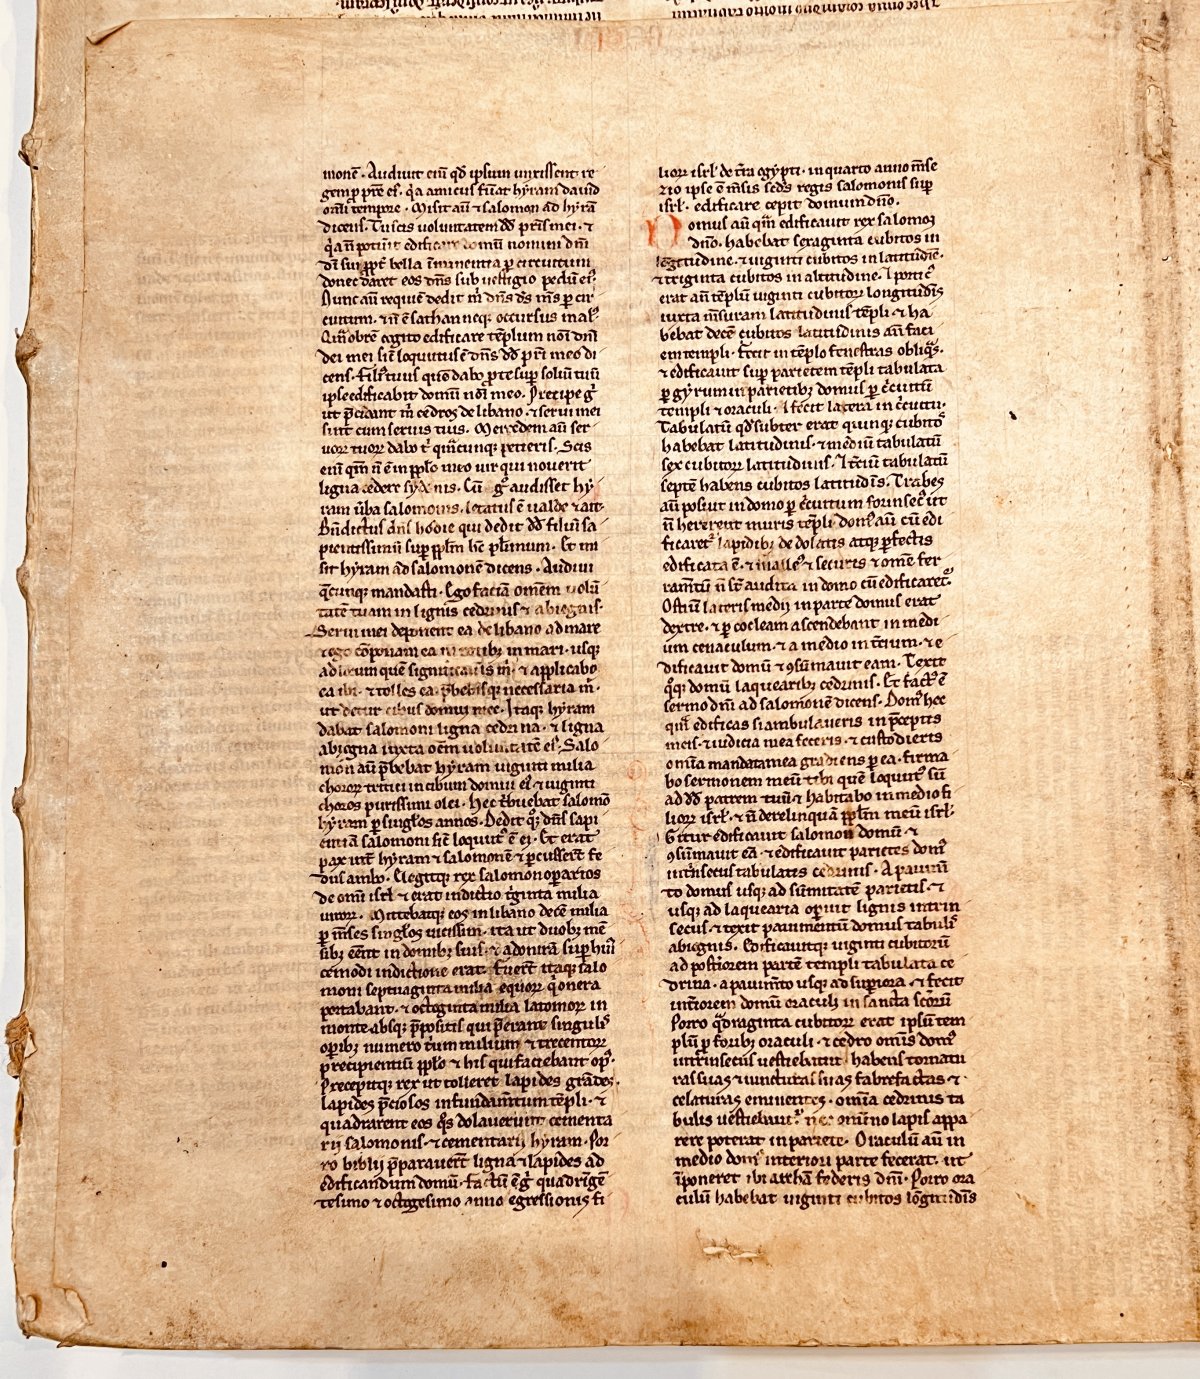 monē. Audiuit eni͂ qđ ipsum unxissent re
gem p̱ pr̄e ei᷒. q̇a amicus fūat hyram dauid
om̄i tempore. Misit aū ⁊ salomon ad hyrā
dicens. Tu scis voluntatem dđ pr̄is mei. ⁊
q̇a n̄ potūit edificare domū nomini dn̄i
dī sui ꝓpt̄ bella īminentia ꝑ circuitum
donec daret eos dn̄s sub uestigio pedū ei᷒.
Nunc aū requiē dedit m̄ dn̄s ds̄ ms̄ ꝑ cir
cuitum. ⁊ n̄ ē sathan neqꝫ occursus mal᷒.
Qm̄obrē cogito edificare tēplum noī dn̄i
dei mei sic̄ loquutus ē dn̄s dđ pr̄i meo di
cens. Fili᷒ tuus quē dabo ꝓ te suꝑ soliū tuū
ipse edificabit domū noī meo. Precipe g͛
ut p̄cidant m̄ cedros de libano. ⁊ serui mei
sint cum seruis tuis. Mercedem aū ser
uoꝝ tuoꝝ dabo t͛ qm̄cunqꝫ petieris. Scis
eni͂ qm̄ n̄ ē in pplo meo uir qui nouerit
ligna cedere sydonis. Cū g͛ audisset hy
ram ūba salomonis. letatus ē ualde ⁊ ait.
Bn̄dictus dn̄s hodie qui dedit dđ filiū sa
pientissimū suꝑ ppl̄m hc̄ pl̄imum. Et mi
sit hyram ad salomonē dicens. Audiui
q̄cunqꝫ mandasti. Ego faciā omēm uolū
tatē tuam in lignis cedrinis ⁊ abiegnis.
Serui mei deponent ea de libano ad mare
⁊ ego cōponam ea in ratibꝫ in mari. usqꝫ
ad locum quē significaueris m̄. ⁊ applicabo
ea ibi. ⁊ tolles ea. p̄bebisqꝫ necessaria m̄.
ut detur cibus domui mee. Itaqꝫ hyram
dabat salomoni ligna cedrina. ⁊ ligna
abiegna iuxta oēm uoluntatē ei᷒. Salo
mon aū p̄bebat hyram uiginti milia
choroꝝ tritici in cibum domui ei᷒ ⁊ uiginti
choros purissimi olei. Hec tͥbuebat salomō
hyram ꝑ singl̄os annos. Dedit qꝫ dn̄s sapi
entiā salomoni sic̄ loquut᷒ ē ei. Et erat
pax int͛ hyram ⁊ salomonē ⁊ ꝑcusser̄t fe
dus ambo. Elegitqꝫ rex salomon oꝑarios
de omī isrl̄ ⁊ erat indictio tͥginta milia
uiroꝝ. Mittebatqꝫ eos in libano decē milia
ꝑ mēses singl̄os uicissim. ita ut duobꝫ mē
sibꝫ eēnt in domibꝫ suis. ⁊ adonirā suꝑ hui᷒
cemodi indictione erat. Fuer̄t itaqꝫ salo
moni septuaginta milia eoꝝ q̇ onera
portabant. ⁊ octoginta milia latomoꝝ in
monte. absqꝫ p̄positis qui p̄erant singulis
oꝑibꝫ numero tͥum milium ⁊ trecentoꝝ
precipientiū pplo ⁊ his qui faciebant op᷒.
Precepitqꝫ rex ut tollerēt lapides grādes
lapides p̄ciosos in fundam̄tum tēpli. ⁊
quadrarent eos q᷒s dolauerunt cementa
rii salomonis. ⁊ cementarij hyram. Por
ro biblij p̄parauer̄t ligna ⁊ lapides ad
edificandum domū. Factū ē g͛ quadringē
tesimo ⁊ octogesimo anno egressionis fi
lioꝝ isrl̄ de tr̄a egypti. in quarto anno mēse
zio ipse ē mēsis scđs regis salomonis suꝑ
isrl̄. edificare cepit domum dn̄o.
Domus aū qm̄ edificauit rex salomon
dn̄o. habebat sexaginta cubitos in
lōgitudine. ⁊ uiginti cubitos in latitudīe.
⁊ triginta cubitos in altitudine. Ⅎ portic᷒
erat aū tēplū uiginti cubitoꝝ longitudīs
iuxta mēsuram latitudinis tēpli. ⁊ ha
bebat decē cubitos latitudinis aū faci
em templi. fecit in tēplo fenestras obliq᷒s.
⁊ edificauit suꝑ parietem tēpli tabulata
ꝑ gyrum in parietibꝫ domus ꝑ c̄cuitū
templi ⁊ oraculi. ⁊ fecit latera in c̄cuitu.
Tabulatū qđ subter erat quinqꝫ cubitos
habebat latitudinis. ⁊ mediū tabulatū
sex cubitoꝝ latitudinis. ⁊ t̄ciū tabulatū
septē habens cubitos latitudīs. Trabes
aū posuit in domo ꝑ c̄cuitum forinsec᷒ ut
n̄ hererent muris tēpli. dom᷒ aū cū edi
ficaret᷑ lapidibꝫ dedolatis atqꝫ ꝑfectis
edificata ē. ⁊ malle᷒ ⁊ securis ⁊ omē fer
ram̄tū n̄ st̄ audita in domo cū edificaret᷑.
Ostiū lateris medij in parte domus erat
dextre. ⁊ ꝑ cocleam ascendebant in medi
um cenaculum. ⁊ a medio in t̄cium. ⁊ e
dificauit domū ⁊ ꝯsūmauit eam. Texit
q᷒qꝫ domū laquearibꝫ cedrinis. Et fact᷒ ē
sermo dn̄i ad salomonē dicens. Dom᷒ hec
quā edificas si ambulaueris in p̄ceptis
meis. ⁊ iudicia mea feceris. ⁊ custodieris
omīa mandata mea gradiens ꝑ ea. firma
bo sermonem meū tibi quē loquut᷒ sū
ad dđ patrem tuū ⁊ habitabo in medio fi
lioꝝ isrl̄. ⁊ n̄ derelinquā ppl̄m meū isrl̄.
Gitur edificauit salomon domū ⁊
ꝯsūmauit eā. ⁊ edificauit parietes dom᷒
intͥnsecus tabulatis cedrinis. A pauim̄
to domus usqꝫ ad sūmitatē parietis. ⁊
usqꝫ ad laquearia oꝑuit lignis intrin
secus. ⁊ texit pauimentū domus tabulis
abiegnis. Edificauitqꝫ uiginti cubitorū
ad postͥorem partē templi tabulata ce
drina. a pauim̄to usqꝫ ad suꝑiora. ⁊ fecit
int̄iorem domū oraculi in sancta scōrū
Porro q̄draginta cubitoꝝ erat ipsū tem
plū p̱ foribꝫ oraculi. ⁊ cedro omīs dom᷒
intrinsecus uestiebatur. habens tornatu
ras suas ⁊ iuncturas suas fabrefactas ⁊
celaturas eminentes. omīa cedrinis ta
bulis uestiebant᷑. nec omnino lapis appa
rere poterat in pariete. Oraculū aū in
medio dom᷒ interiori parte fecerat. ut
īponeret ibi archā federis dn̄i. Porro ora
culū habebat uiginti cubitos lōgitudīs